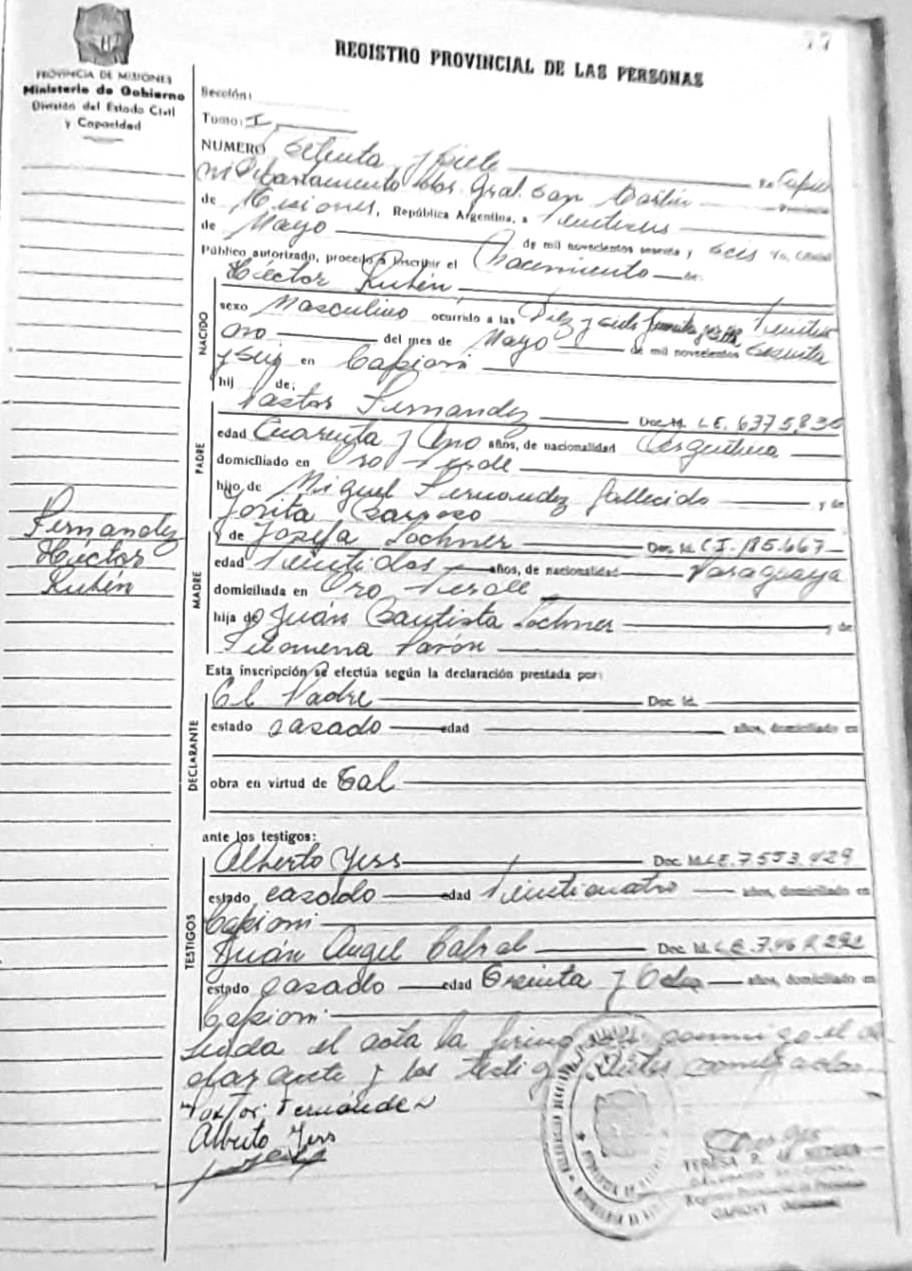 77
PROVINCIA DE MISIONES
Ministerio de Gobierno
División del Estado Civil
y Capacidad
REGISTRO PROVINCIAL DE LAS PERSONAS
Sección:
Tomo: I
NUMERO Setenta y siete En Capio
vi Departamento Lib. Gral. San Martín Provincia
de Misiones, República Argentina, a Veintitres
de Mayo de mil novecientos sesenta y seis Yo, Oficial
Público autorizado, procedo a inscribir el Nacimiento de:
Héctor Rubén
NACIDO
sexo Masculino ocurrido a las Diez y siete
del mes de Mayo de mil novecientos sesenta
y seis en Capiovi
hij de:
PADRE
Pastor Fernandez Doc. Id. L.E. 6375.830
edad Cuarenta y Uno años, de nacionalidad Argentina
domiciliado en Oro Verde
hijo de Miguel Fernandez fallecido y de
Jorita Barroso
MADRE
y de Josefa Lochner Doc. Id. C.I. 185.667
edad Veintidos años, de nacionalidad Paraguaya
domiciliada en Oro Verde
hija de Juán Bautista Lochner y de
Filomena Parón
Fernandez
Héctor
Rubén
Esta inscripción se efectúa según la declaración prestada por:
DECLARANTE
El Padre Doc. Id.
estado casado edad años, domiciliado en
obra en virtud de Tal
ante los testigos:
TESTIGOS
Alberto Yess Doc. Id. L.E. 7.553.429
estado casado edad Veinticuatro años, domiciliado en
Capiovi
Juán Angel Cabral Doc. Id. L.E.
estado casado edad Treinta y Ocho años, domiciliado en
Capiovi
Leida el acta la firman conmigo el de
clarante y los testigos
Pastor Fernandez
Alberto Yess
TERESA R. de
Registro Provincial de las Personas
CAPIOVI Misiones